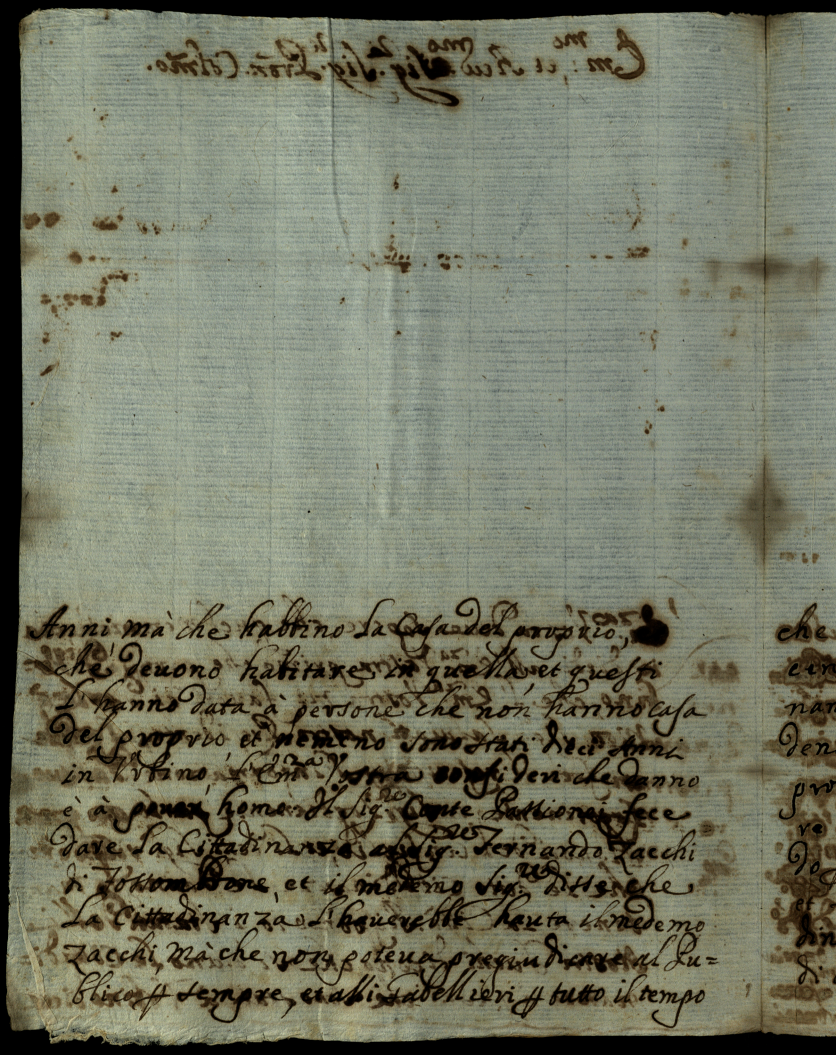 Em.mo et Rev.mo Sig.re Sig.re Pron Colmo.
Anni mà che habbino la Casa del proprio,
che devono habitare in quella, et questi
l'hanno data à persone che non hanno casa
del proprio et nemeno sono stati dieci Anni
in Urbino, l'Em.za Vostra consideri che danno
è à pover' home. Il Sig.re Conte Passionei fece
dare la Cittadinanza al Sig.re Fernando Zacchi
di Fossombrone, et il medemo Sig.re disse che
la Cittadinanza l'haverebbe hauta il medemo
Zacchi, mà che non poteva pregiudicare al Pu=
blico sempre, et alli Gabellieri tutto il tempo
che
nan
den
pro
re
do
et
din
di